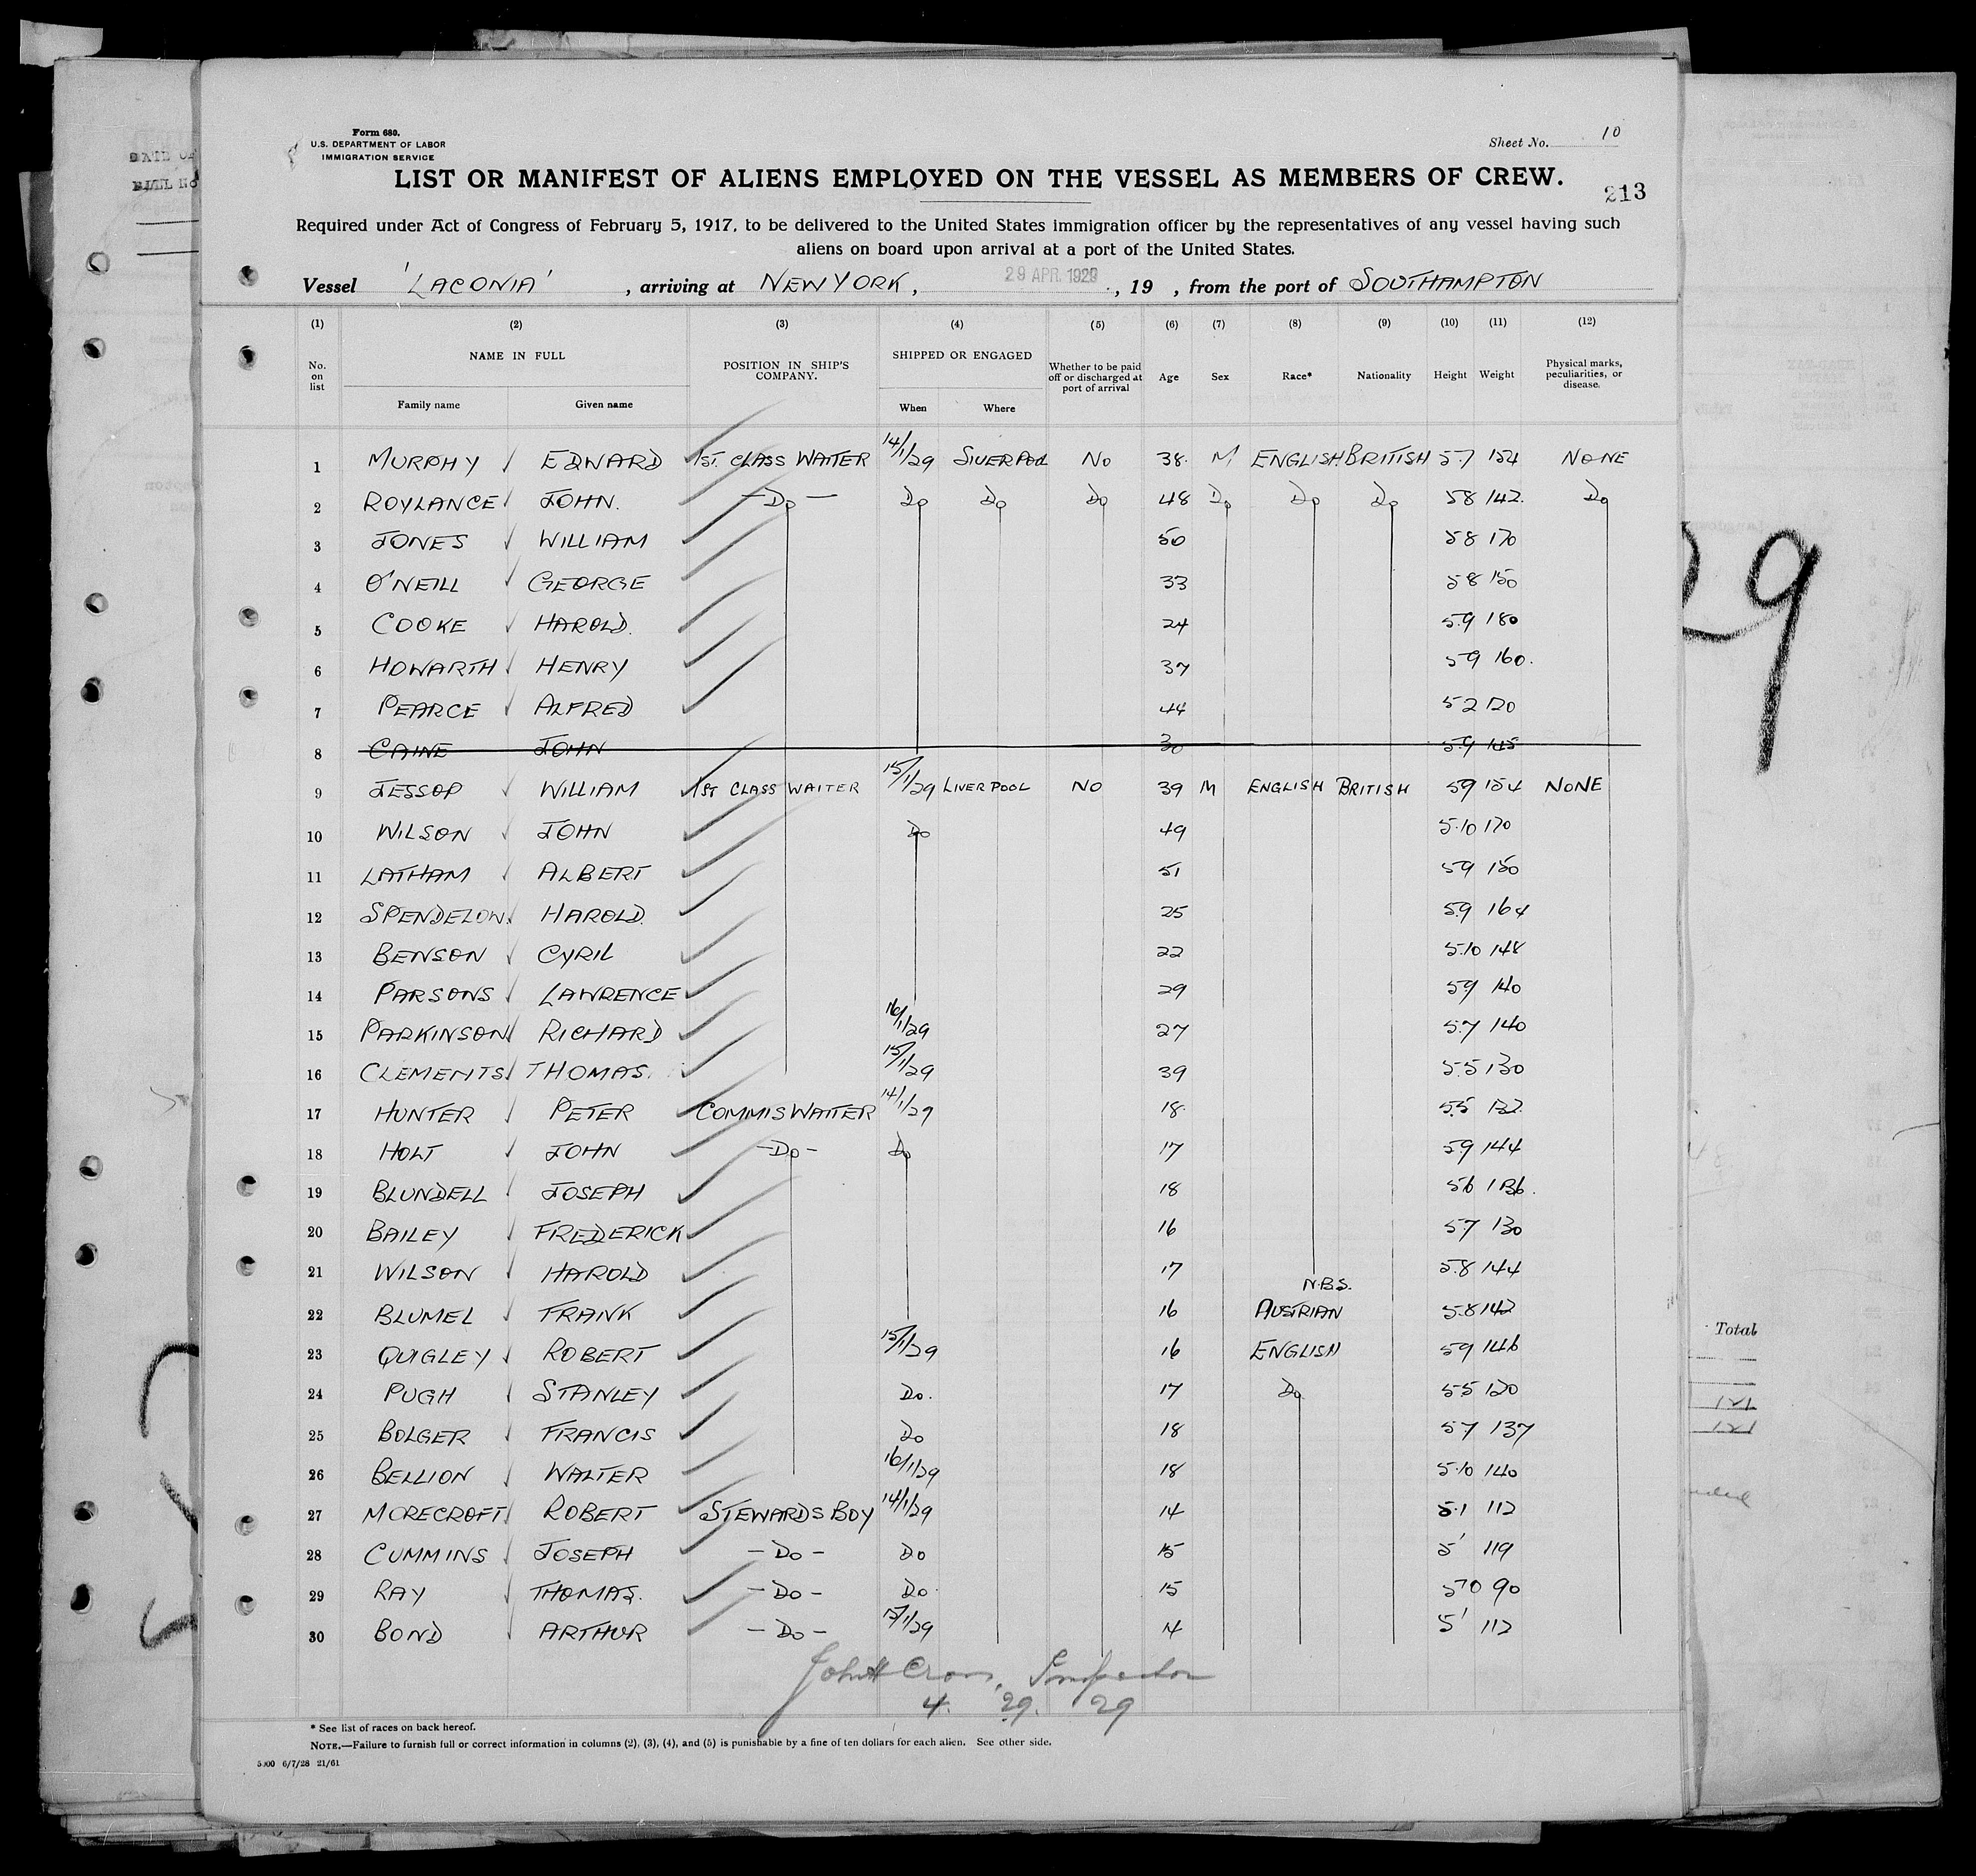 Form 680.
U.S. DEPARTMENT OF LABOR
IMMIGRATION SERVICE
Sheet No. 10
LIST OR MANIFEST OF ALIENS EMPLOYED ON THE VESSEL AS MEMBERS OF CREW.
213
Required under Act of Congress of February 5, 1917, to be delivered to the United States immigration officer by the representatives of any vessel having such
aliens on board upon arrival at a port of the United States.
Vessel 'LACONIA' , arriving at NEW YORK, 29 APR. 1929 , 19 , from the port of SOUTHAMPTON
(1) (2) (3) (4) (5) (6) (7) (8) (9) (10) (11) (12)
No. on list NAME IN FULL POSITION IN SHIP'S COMPANY. SHIPPED OR ENGAGED Whether to be paid off or discharged at port of arrival Age Sex Race* Nationality Height Weight Physical marks, peculiarities, or disease.
Family name Given name When Where
1 MURPHY EDWARD 1ST. CLASS WAITER 14/1/29 LIVERPOOL NO 38. M ENGLISH BRITISH 5.7 154 NONE
2 ROYLANCE JOHN. -Do- Do Do Do 48 Do Do Do 58 142. Do
3 JONES WILLIAM 50 58 170
4 O'NEILL GEORGE 33 58 150
5 COOKE HAROLD. 24 5.9 180
6 HOWARTH HENRY 37 59 160.
7 PEARCE ALFRED 44 52 120
8 CAINE JOHN 30 59 145
9 JESSOP WILLIAM 1ST CLASS WAITER 15/1/29 LIVERPOOL NO 39 M ENGLISH BRITISH 59 154 NONE
10 WILSON JOHN Do 49 5.10 170
11 LATHAM ALBERT 51 59 150
12 SPENDELOW HAROLD. 25 59 164
13 BENSON CYRIL 22 5.10 148
14 PARSONS LAWRENCE 29 59 140
15 PARKINSON RICHARD 16/1/29 27 5.7 140
16 CLEMENTS THOMAS. 15/1/29 39 5.5 130
17 HUNTER PETER COMMIS WAITER 14/1/29 18. 5.5 132
18 HOLT JOHN -Do- Do 17 59 144
19 BLUNDELL JOSEPH 18 56 136.
20 BAILEY FREDERICK 16 5.7 130
21 WILSON HAROLD 17 5.8 144
N.B.S.
22 BLUMEL FRANK 16 AUSTRIAN 5.8 142
23 QUIGLEY ROBERT 15/1/29 16 ENGLISH 59 146
24 PUGH STANLEY Do. 17 Do 55 120
25 BOLGER FRANCIS Do 18 57 137
26 BELLION WALTER 16/1/29 18 5.10 140
27 MORECROFT ROBERT STEWARDS BOY 14/1/29 14 5.1 112
28 CUMMINS JOSEPH -Do- Do 15 5' 119
29 RAY THOMAS. -Do- Do. 15 5'0 90
30 BOND ARTHUR -Do- 15/1/29 14 5' 112
John H Cross, Inspector
4. 29. 29
* See list of races on back hereof.
NOTE.—Failure to furnish full or correct information in columns (2), (3), (4), and (5) is punishable by a fine of ten dollars for each alien. See other side.
5000 6/7/28 21/61
29
Total
121
121